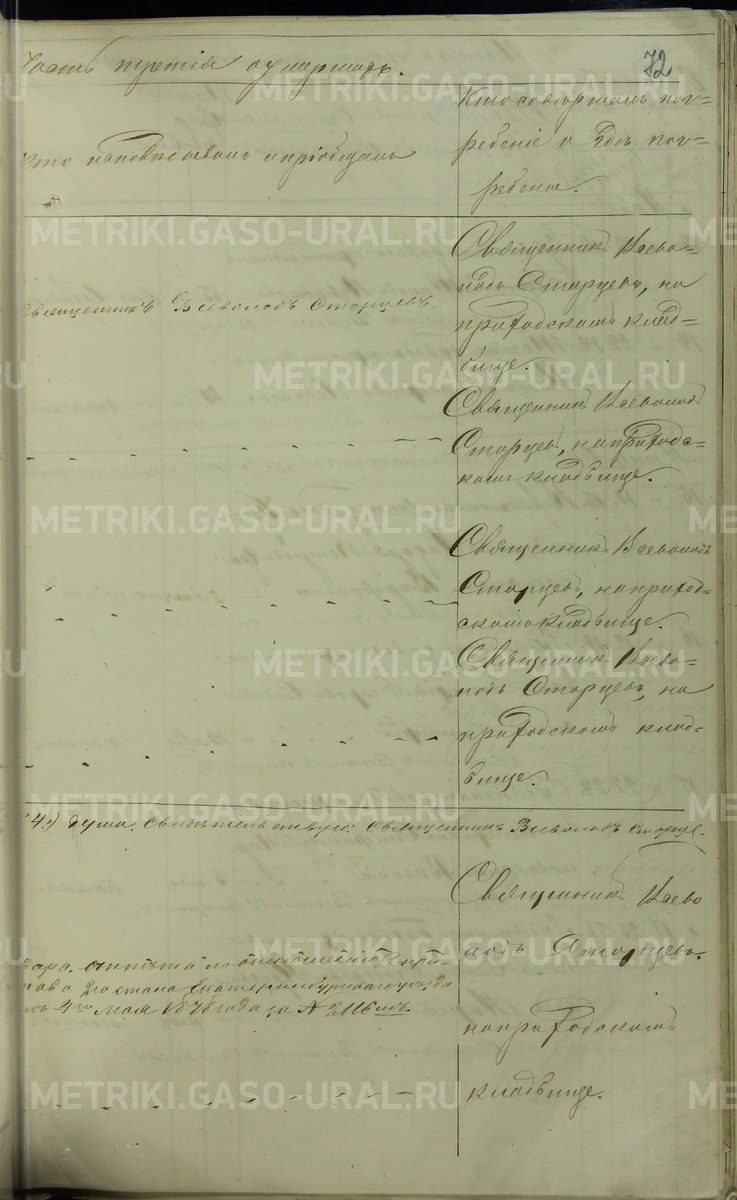 Часть третія о умершихъ.
72
Кто исповѣдывалъ и пріобщалъ
Кто совершалъ пог-
ребеніе и гдѣ пог-
ребены.
Священникъ Всеволодъ Старцевъ.
Священникъ Всево-
лодъ Старцевъ, на
приходскомъ клад-
бище.
Священникъ Всеволодъ
Старцевъ, на приходс-
комъ кладбище.
Священникъ Всеволодъ
Старцевъ, на приход-
скомъ кладбище.
Священникъ Всево-
лодъ Старцевъ, на
приходскомъ клад-
бище.
(4.) душа. Свидѣтельствую: Священникъ Всеволодъ Старце.
Священникъ Всево
лодъ Старцевъ.
на приходскомъ
кладбище.
стана Екатеринбургскаго уѣзда
4го Мая 1878 года за № 2116мъ.
METRIKI.GASO-URAL.RU